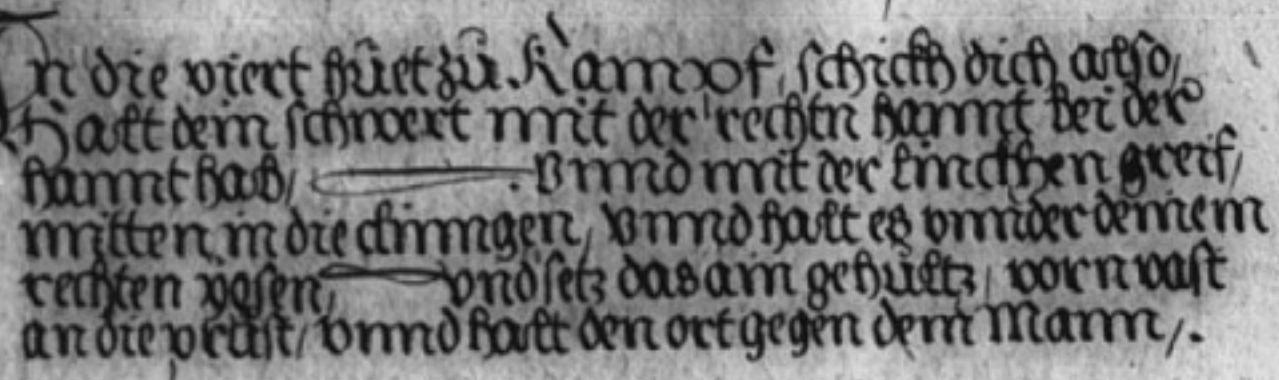 In die viert hůet zů Kampf, schickh dich also,
Halt dein schwert mit der rechtn hannt bei der
hannt hab, Vnnd mit der linckhen greif,
mitten, in die clinngen, Vnnd halt es vnnder deinem
rechten yssen, vnd setz das ain gehültz, vorn vast
an die prust, Vnnd halt den ort gegen dem Mann,.